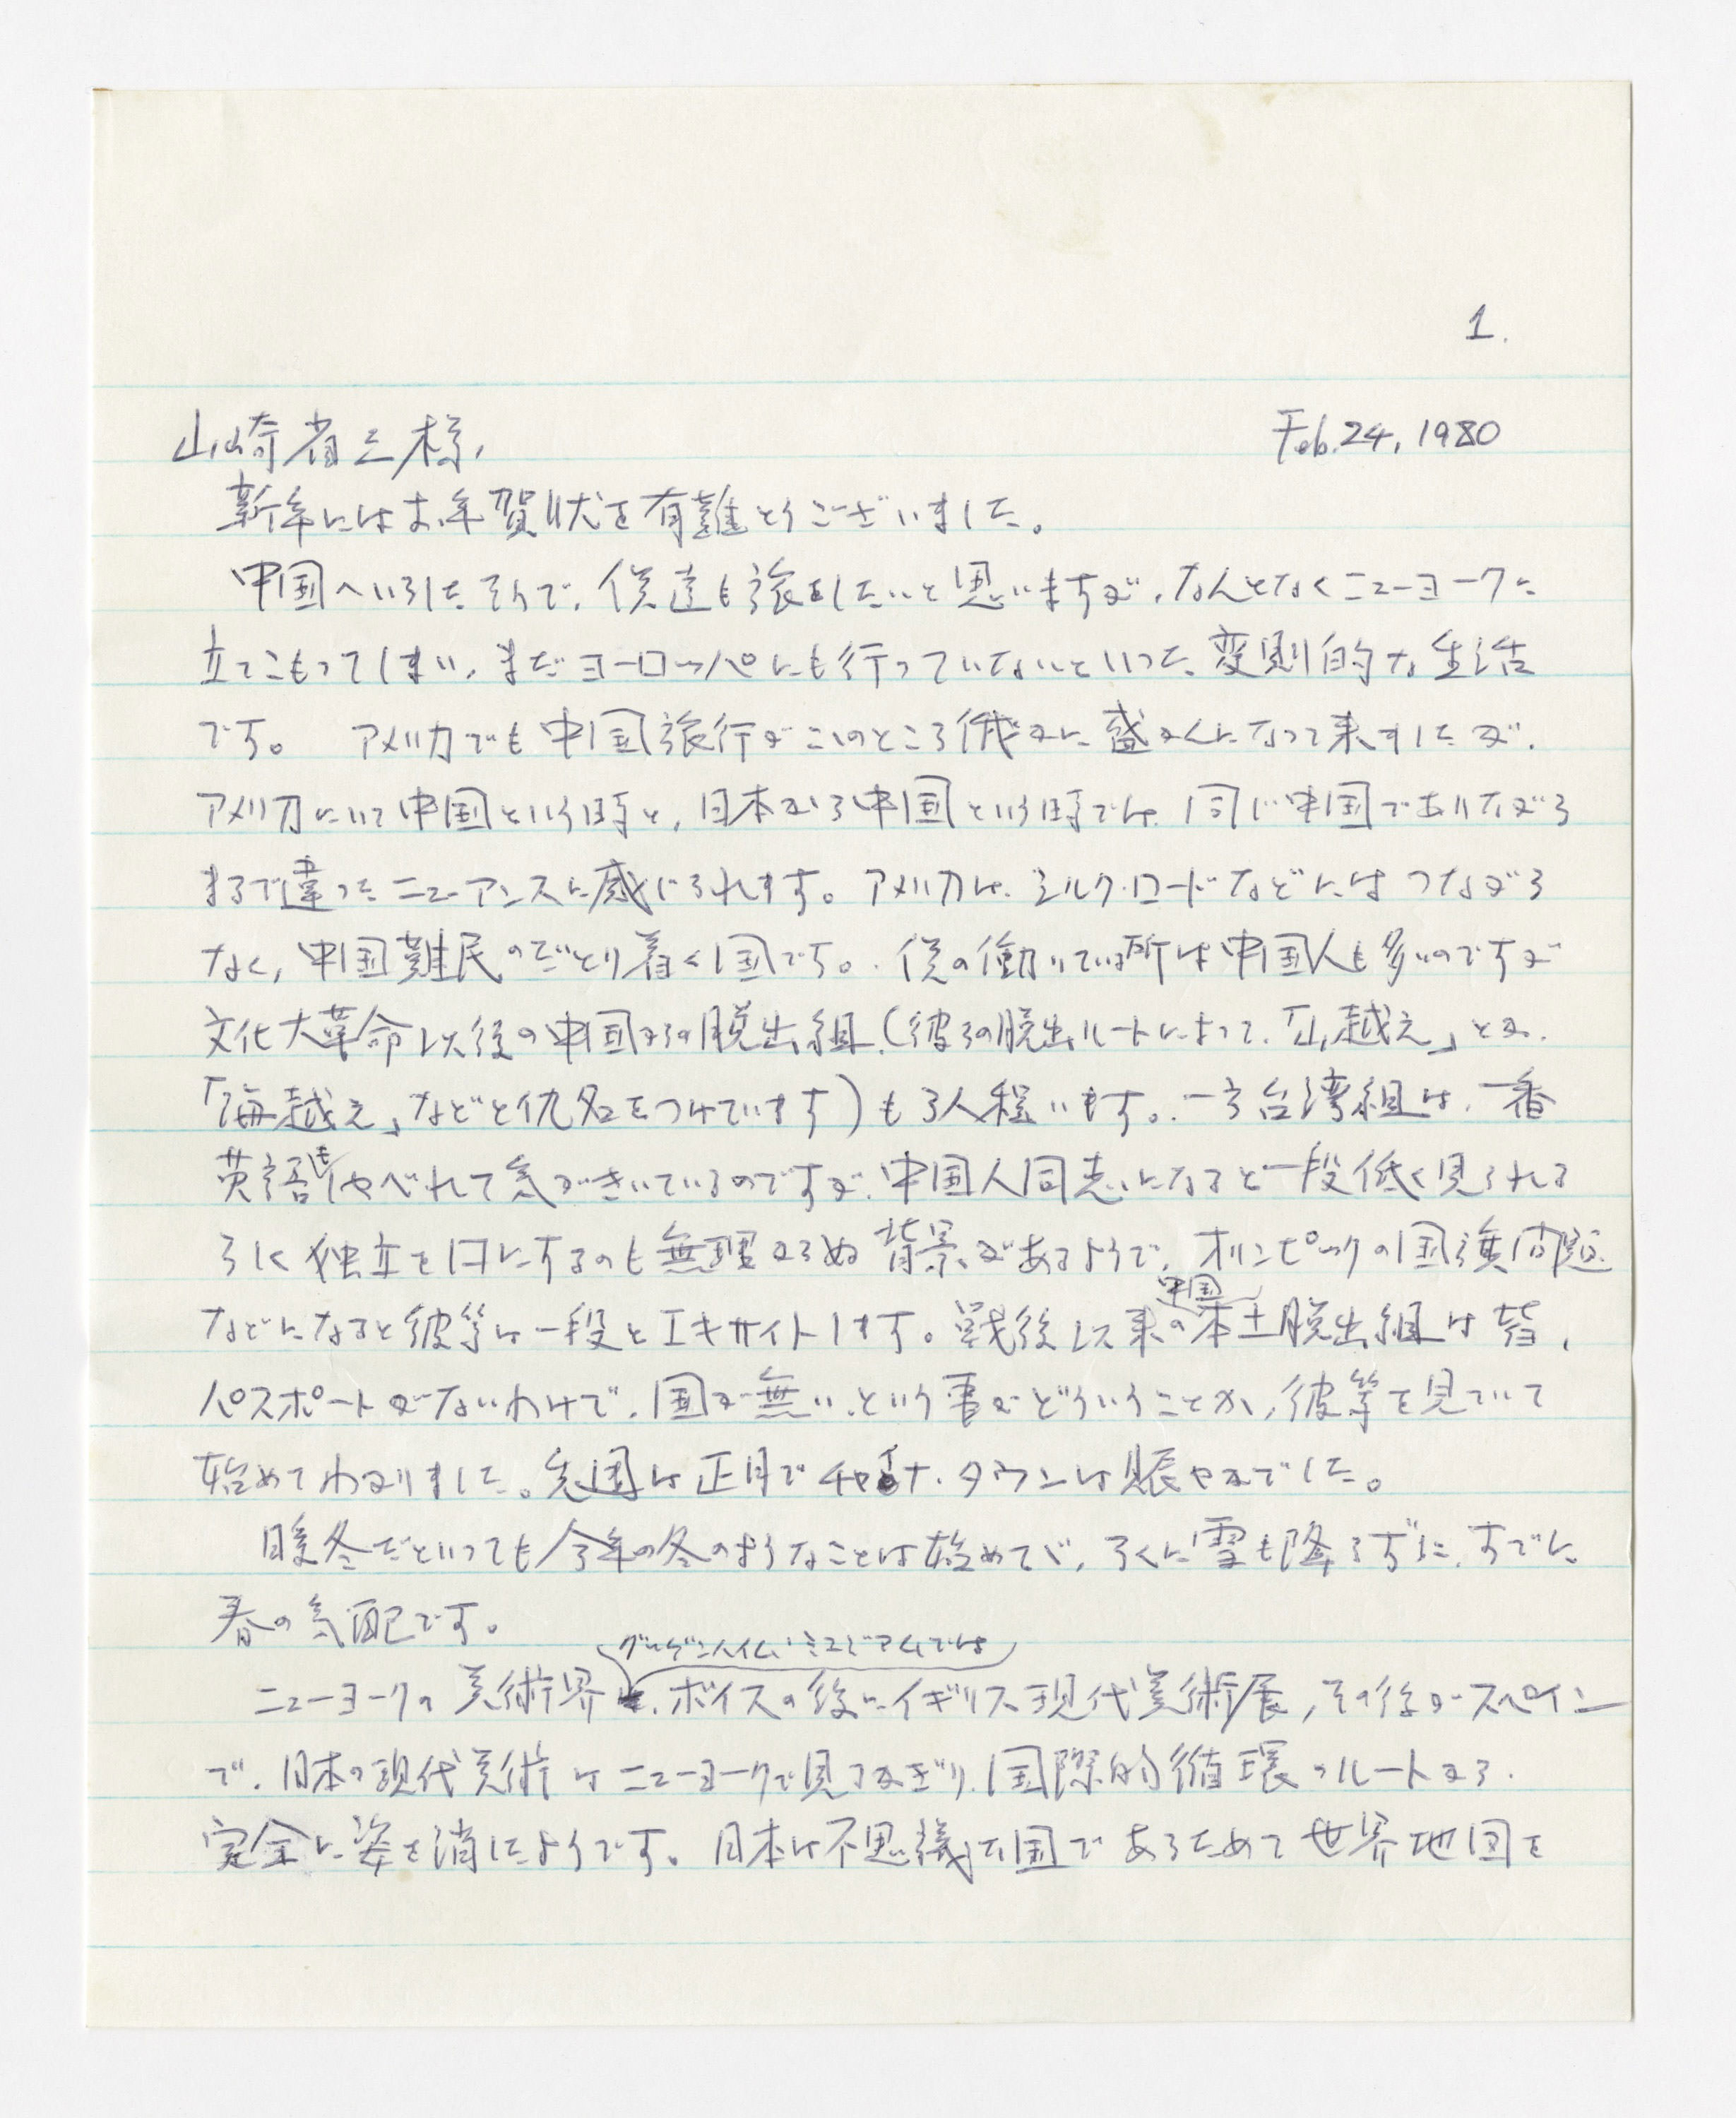 1.
山崎省三様,
Feb. 24, 1980
新年にはお年賀状を有難とうございました。
中国へいらしたそうで、僕達も旅をしたいと思いますが、なんとなくニューヨークに
立てこもってしまい、まだヨーロッパにも行っていないといった変則的な生活
です。 アメリカでも中国旅行がこのところ俄かに盛んになって来ましたが、
アメリカにいて中国という時と、日本から中国という時では、同じ中国でありながら
まるで違ったニューアンスに感じられます。アメリカは、シルク・ロードなどにはつながら
なく、中国難民のたどり着く国です。僕の働いている所は中国人も多いのですが
文化大革命以後の中国からの脱出組、(彼らの脱出ルートによって、「山越え」とか、
「海越え」などと仇名をつけています)も3人程います。一方台湾組は、一番
英語もしゃべれて気がきいているのですが、中国人同志になると一段低く見られる
らしく独立を口にするのも無理からぬ背景があるようで、オリンピックの国旗問題
などになると彼等は一段とエキサイトします。戦後以来の中国本土脱出組は皆、
パスポートがないわけで、国が無い、という事がどういうことか、彼等を見ていて
始めてわかりました。先週は正月でチャイナ・タウンは賑やかでした。
暖冬だといっても今年の冬のようなことは始めてで、ろくに雪も降らずに、すでに
春の気配です。
グッゲンハイム・ミュージアムでは
ニューヨークの美術界、ボイスの後にイギリス現代美術展、その後がスペイン
で、日本の現代美術はニューヨークで見るかぎり、国際的循環のルートから、
完全に姿を消したようです。日本は不思議な国であらためて世界地図を